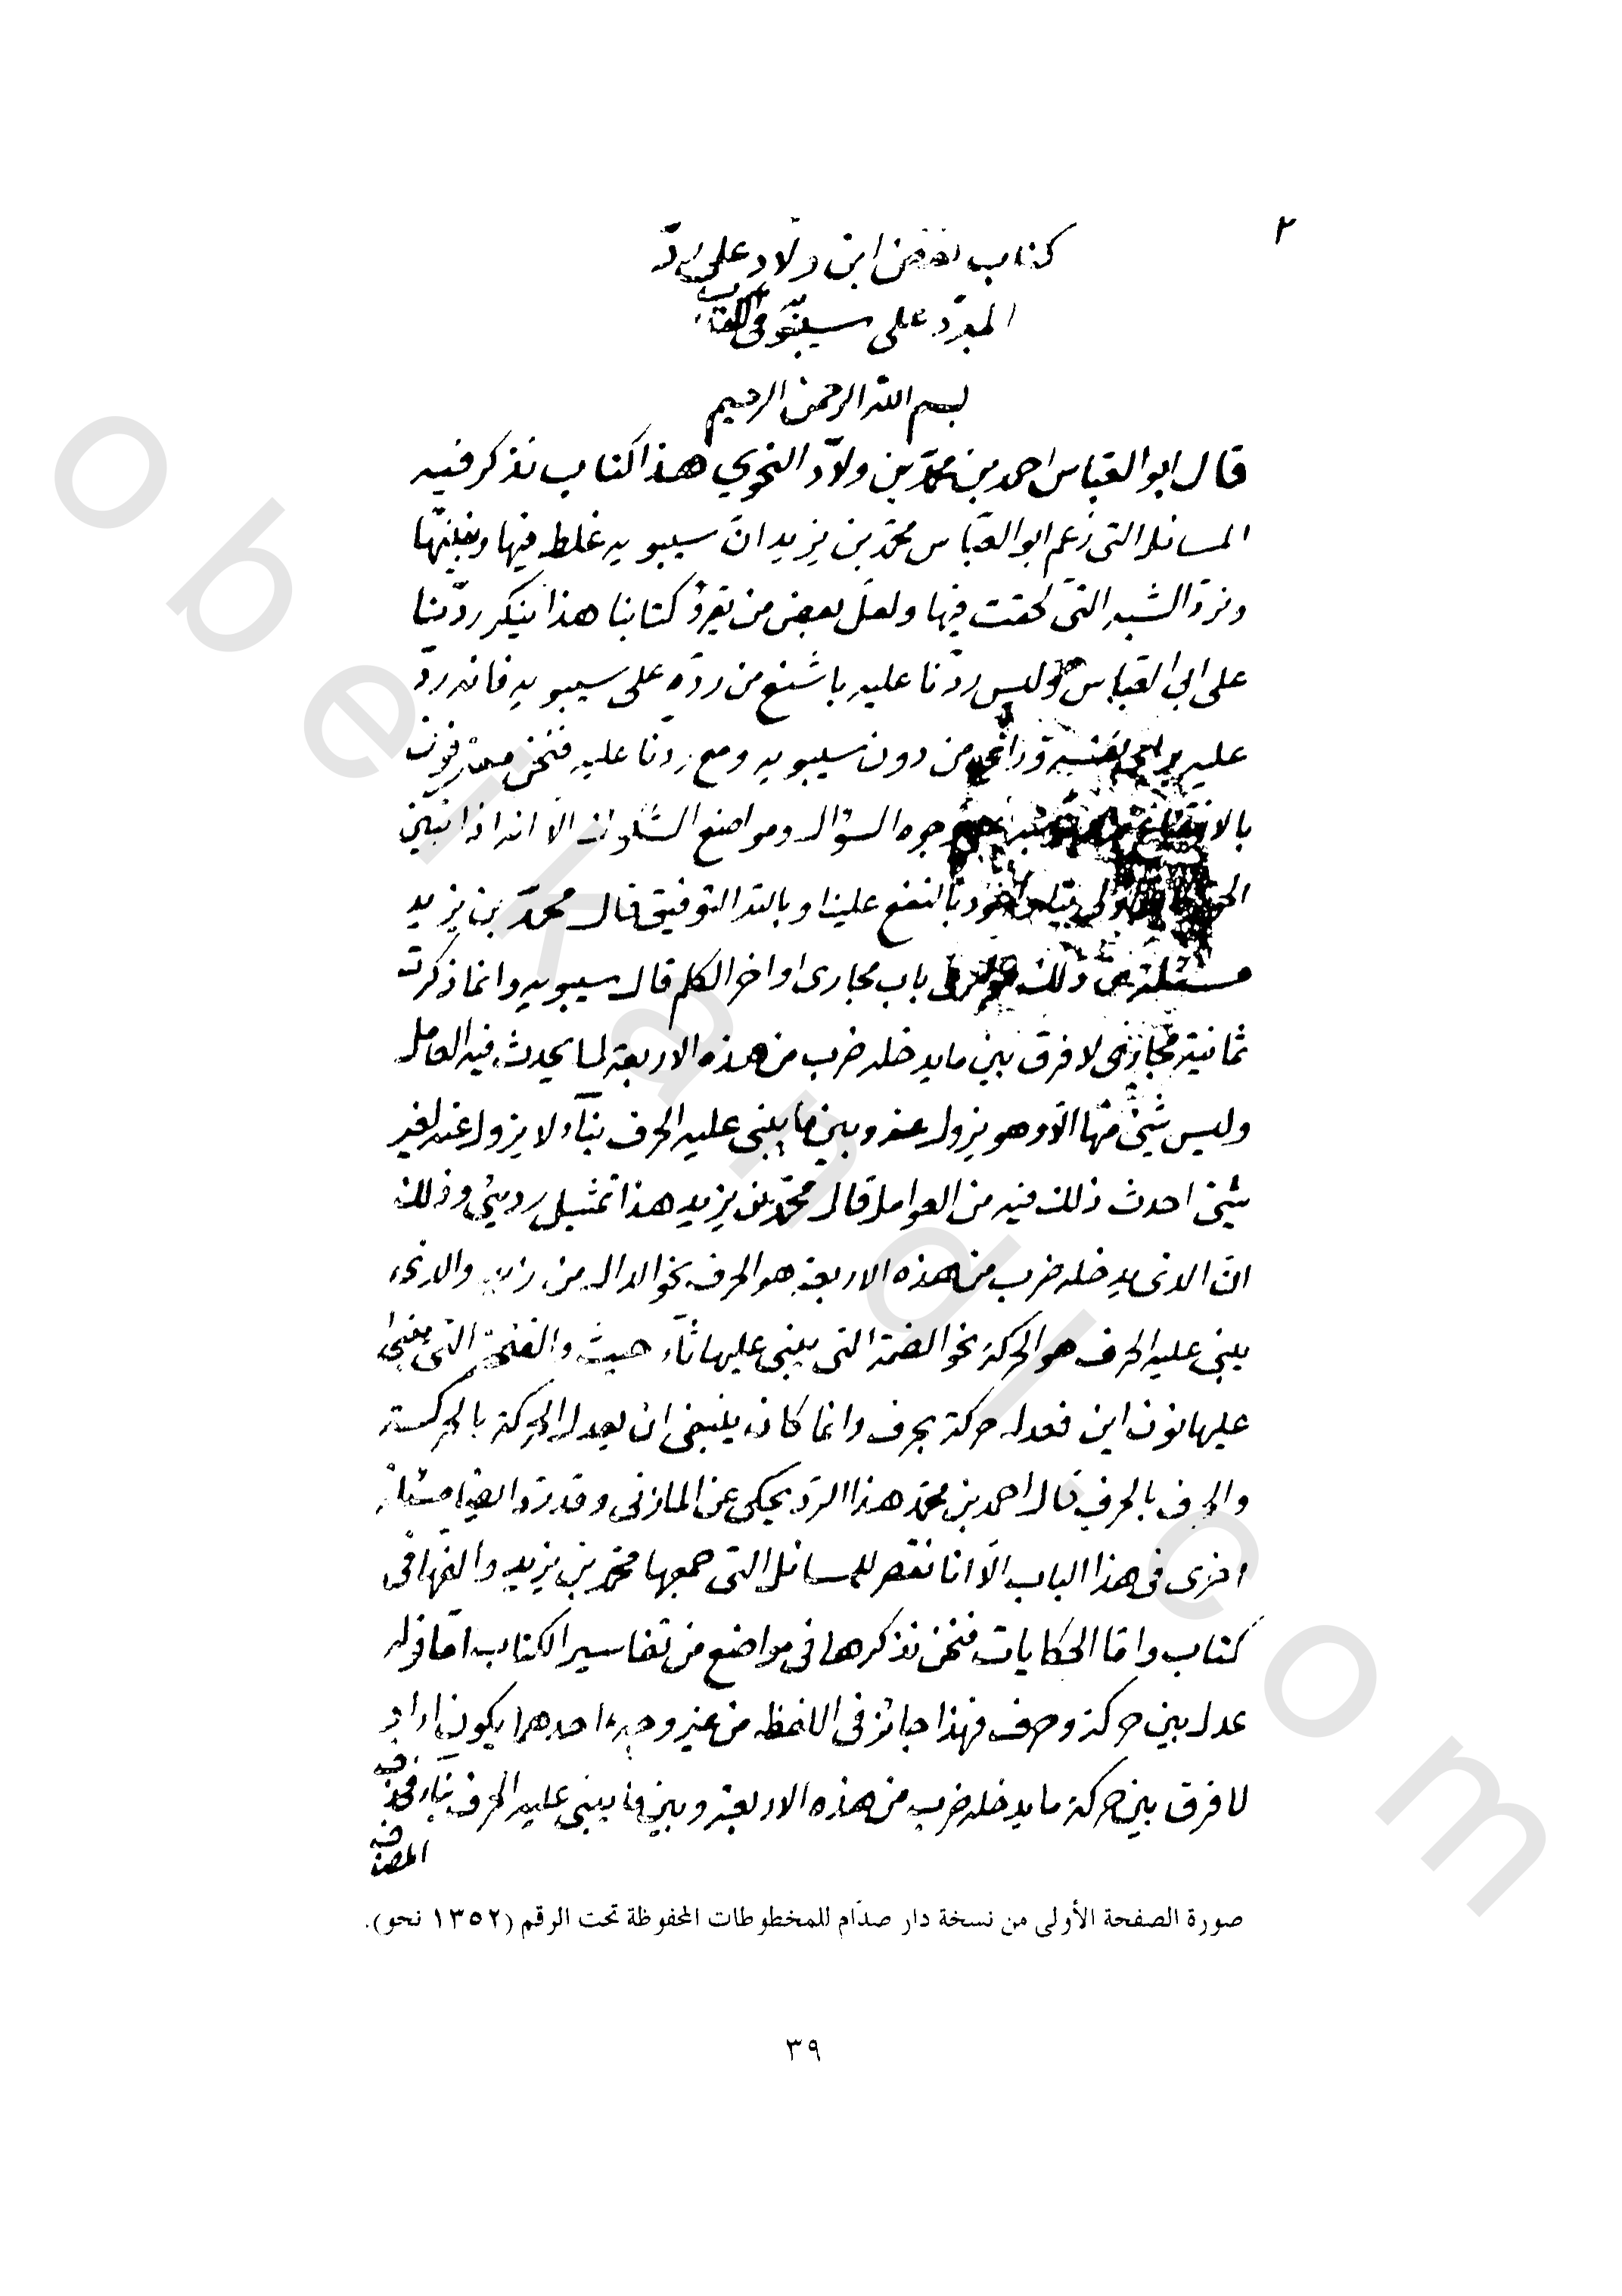 ٢
كتاب نقض ابن ولاد على رد
المبرد على سيبويه في
بسم الله الرحمن الرحيم
قال ابو العباس احمد بن محمد بن ولاد النحوي هذا كتاب نذكر فيه
المسائل التى زعم ابو العباس محمد بن يزيد ان سيبويه غلط فيها ونبينها
ونرد الشبه التى لحقت فيها ولعل بعض من يقرؤ كتابنا هذا ينكر ردنا
على ابي العباس وليس ردنا عليه باشنع من رده على سيبويه فانه رد
عليه من دون سيبويه ومع ردنا عليه فنحن معترفون
بالانتفاع به وجوه السؤال ومواضع الشكوك الا انه اذا تبين
الحق بنا النفع علينا وبالله التوفيق قال محمد بن يزيد
مسئلة من ذلك باب مجارى اواخر الكلم قال سيبويه وانما ذكرت
ثمانية مجارى لا فرق بين ما يدخله ضرب من هذه الاربعة لما يحدث فيه العامل
وليس شئ منها الا وهو يزول عنه وبين ما يبنى عليه الحرف بناء لا يزول عنه لغير
شئ احدث ذلك فيه من العوامل قال محمد بن يزيد هذا تمثيل ردئ وذلك
ان الذى يدخله ضرب من هذه الاربعة هو الحرف نحو الدال من زيد والذى
يبنى عليه الحرف هو الحركة نحو الضمة التى يبنى عليها ثاء حيث والفتحة التى يبنى
عليها نون اين فعدل حركة بحرف وانما كان ينبغى ان يعدل الحركة بالحركة
والحرف بالحرف قال احمد بن محمد هذا الرد يحكى عن المازنى وقد رد ايضا مسئلة
اخرى فى هذا الباب الا انا نقصر للمسائل التى جمعها محمد بن يزيد والفها فى
كتاب واما الحكايات فنحن نذكرها فى مواضع من تفاسير الكتاب اما قوله
عدل بين حركة وحرف فهذا جائز فى اللفظ من غير وجه احدهما يكون اراد
لا فرق بين حركة ما يدخله ضرب من هذه الاربعة وبين ما يبنى عليه الحرف بناء فحذف
المضاف
صورة الصفحة الأولى من نسخة دار صدّام للمخطوطات المحفوظة تحت الرقم (١٣٥٢ نحو).
٣٩
obeikandl.com